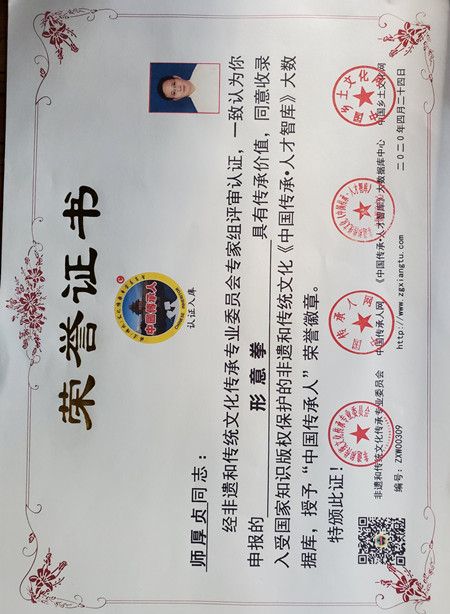 荣誉证书
中国传承人
认证入库
师厚贞同志：
经非遗和传统文化传承专业委员会专家组评审认证，一致认为你
申报的 形意拳 具有传承价值，同意收录
入受国家知识版权保护的非遗和传统文化《中国传承·人才智库》大数
据库，授予“中国传承人”荣誉徽章。
特颁此证！
非遗和传统文化传承专业委员会 中国传承人网 《中国传承·人才智库》大数据库中心 中国乡土文化网
编号：ZXW00309 http://www.zgxiangtu.com 二0二0年四月二十四日